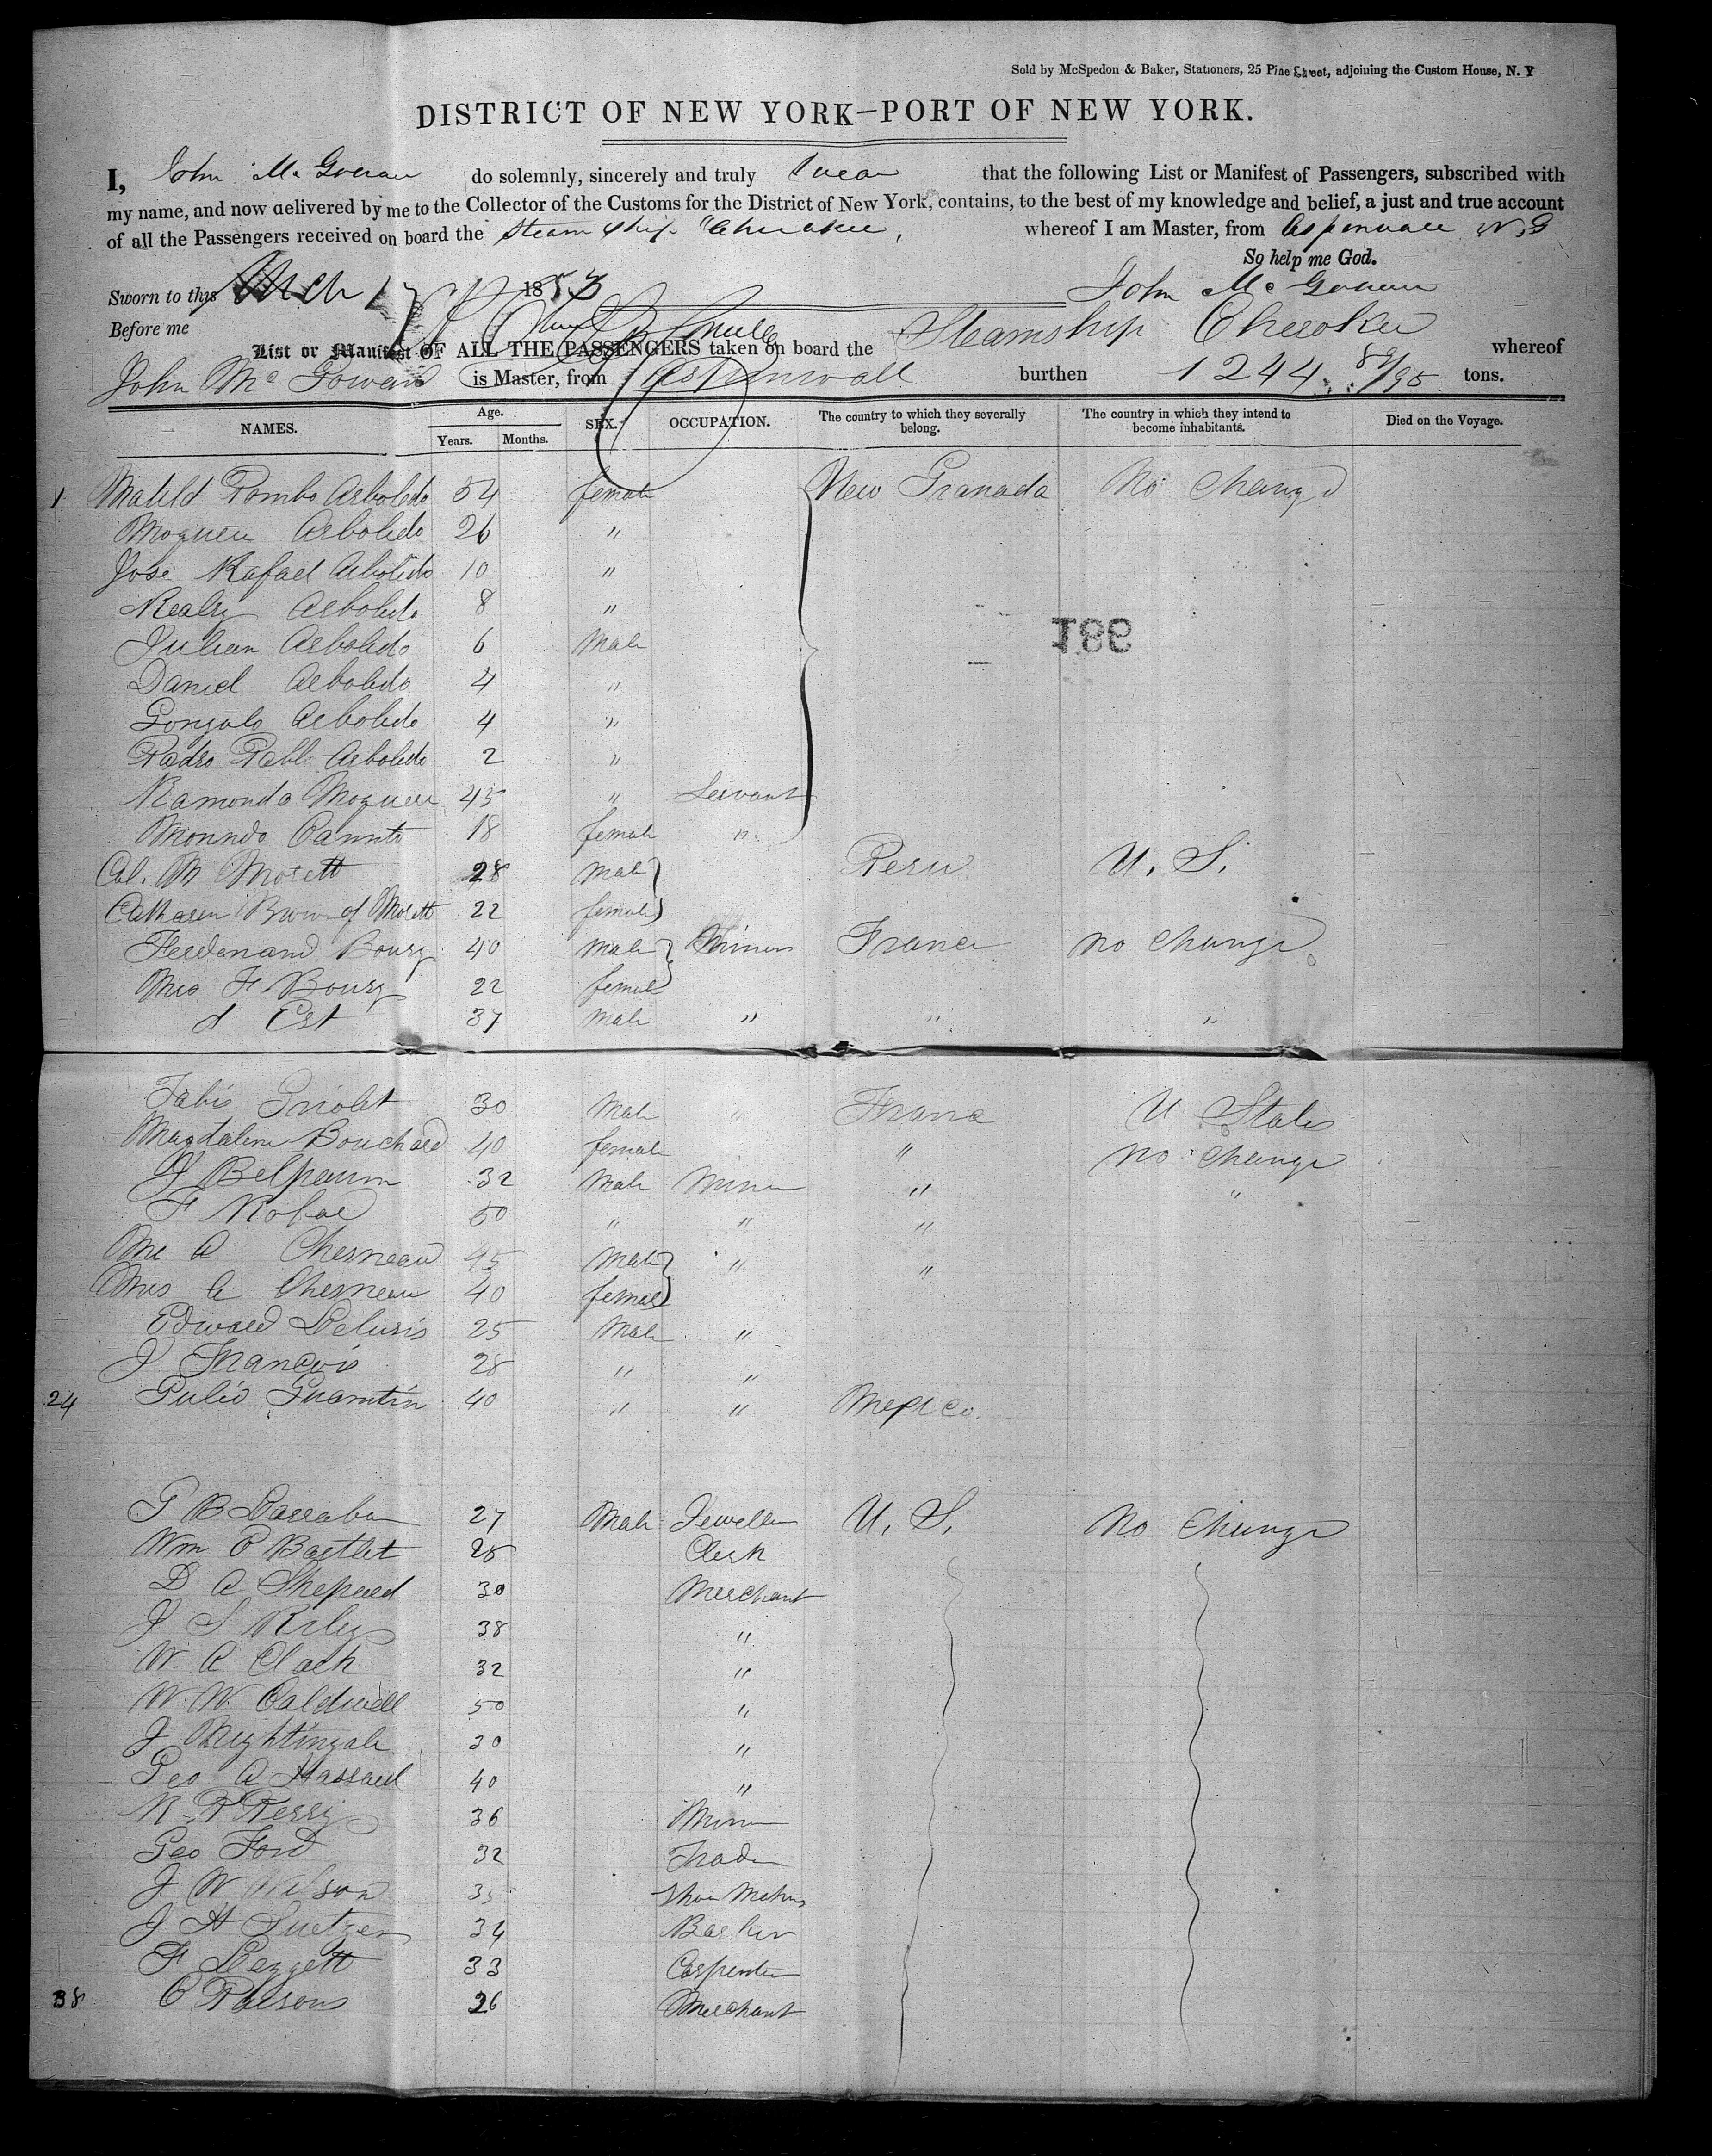 Sold by McSpedon & Baker, Stationers, 25 Pine Street, adjoining the Custom House, N. Y
DISTRICT OF NEW YORK—PORT OF NEW YORK.
I, John McGowan do solemnly, sincerely and truly swear that the following List or Manifest of Passengers, subscribed with
my name, and now delivered by me to the Collector of the Customs for the District of New York, contains, to the best of my knowledge and belief, a just and true account
of all the Passengers received on board the Steam Ship "Cherokee, whereof I am Master, from Aspinwall N.G
So help me God.
Sworn to this Mch 17 1853 John McGowan
Before me
List or Manifest OF ALL THE PASSENGERS taken on board the Steamship Cherokee whereof
John McGowan is Master, from Aspinwall burthen 1244 /95 tons.
NAMES. Age. Years. Months. SEX. OCCUPATION. The country to which they severally belong. The country in which they intend to become inhabitants. Died on the Voyage.
1 Matild Pombo Arboledo 34 female New Granada No Change
Arboledo 26 "
Jose Rafael Arboledo 10 "
Arboledo 8 "
Julian Arboledo 6 Male
Daniel Arboledo 4 "
Gonzalo Arboledo 4 "
Pedro Pabl Arboledo 2 "
Ramonda 45 " Servant
18 female "
Col. M Morett 28 Male Peru U. S.
Catharen of Morett 22 female
Ferdenand Boury 40 Male Miner France No Change
Mrs F Boury 22 female
37 Male " " "
186
30 Male " France U States
Magdalene Bouchard 40 female " No Change
J Belpaum 32 Male Miner " "
F 50 " " "
Mr A Chesneau 45 Male " "
Mrs A Chesneau 40 female
Edward 25 Male "
J Francois 28 " "
24 40 " " Mexico.
27 Male Jeweller U. S. No Change
Wm P Bartlet 28 Clerk
D A Shepard 30 Merchant
J S Riley 38 "
W A Clark 32 "
W. W. Caldwell 50 "
J Nightingale 30 "
Geo A Hassard 40 "
R P Perry 36 Miner
Geo Ford 32 Trader
J W Wilson 35 Shoe Maker
J H 34
F Leggett 33 Carpenter
38 C Parsons 26 Merchant